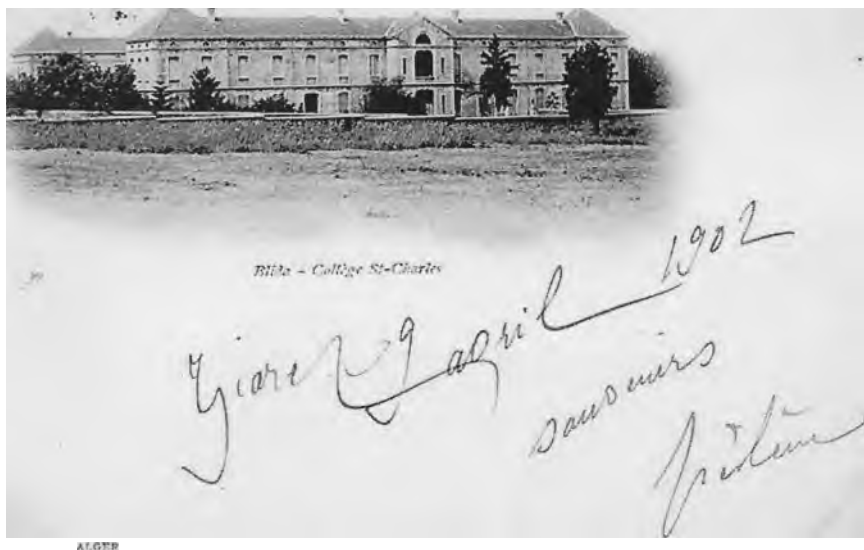 Blida - Collège St-Charles
9 avril 1902
souvenirs
ALGER